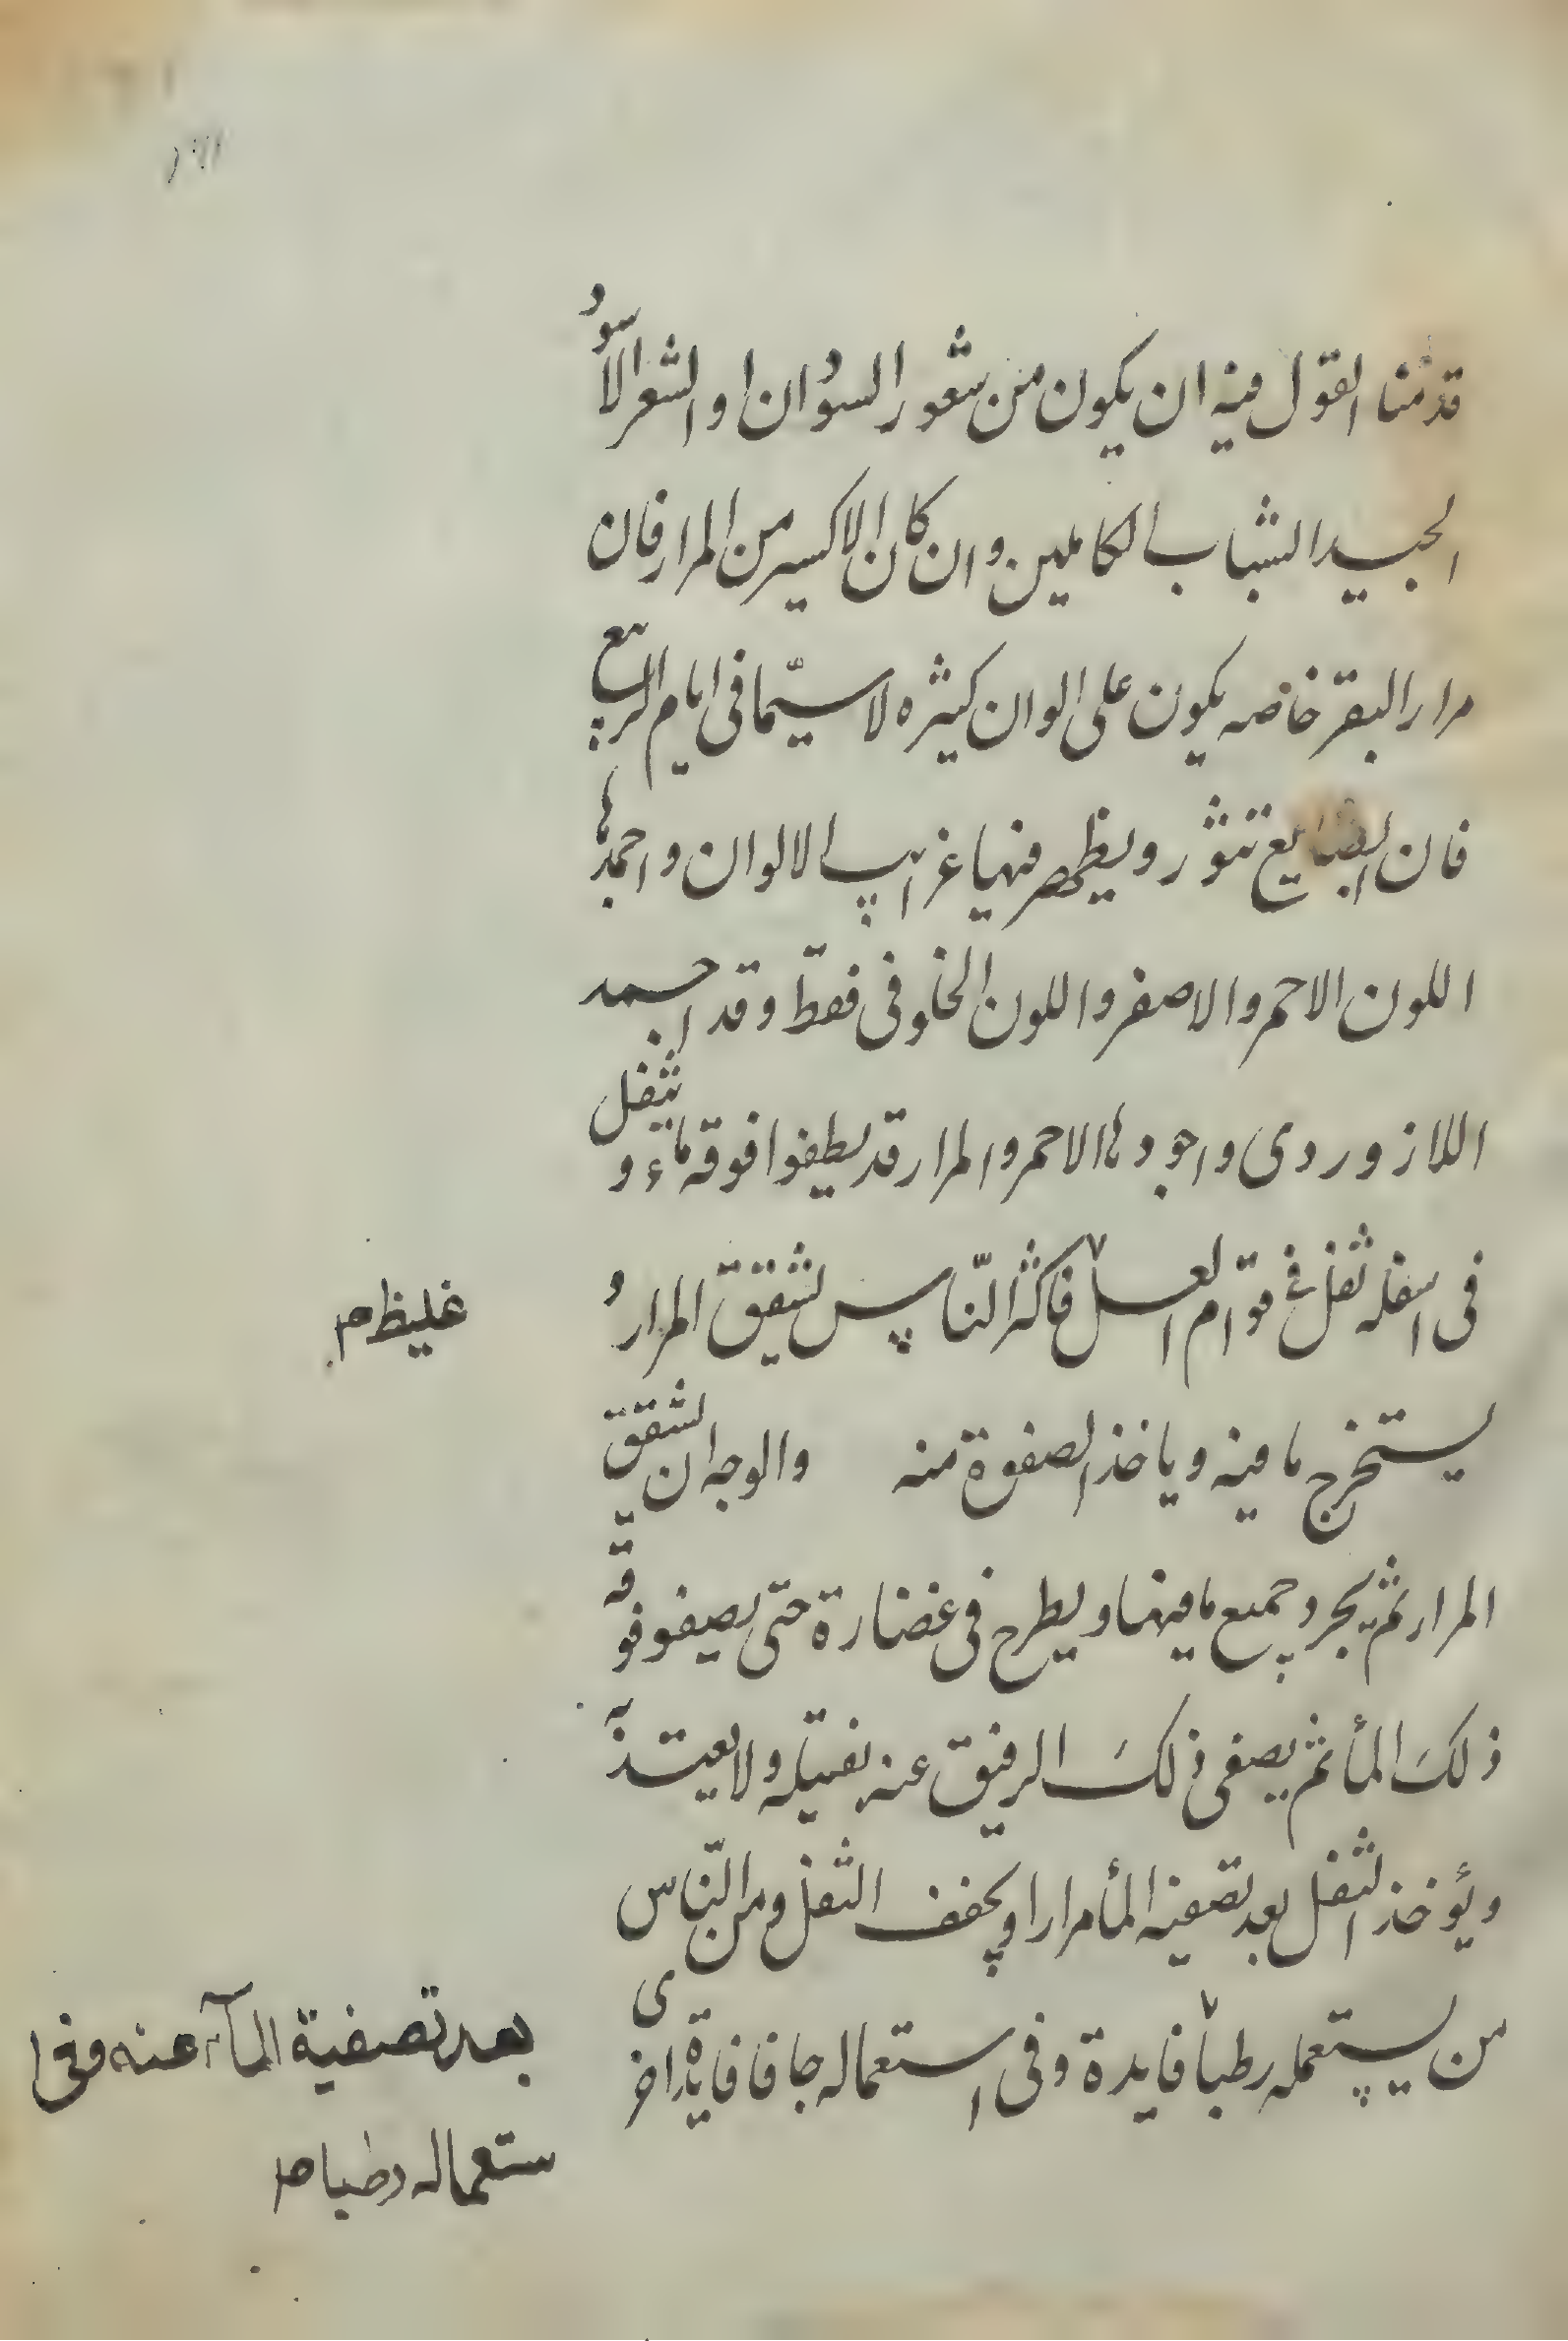 قدمنا القول فيه ان يكون من شعور السودان او الشعر الاسود
الجيد الشباب الكاملين وان كان الاكسير من المرار فان
مرار البقر خاصه يكون على الوان كثيره لا سيّما فى ايام الربيع
فان الطبايع تثور ويظهر فيها غرايب الالوان واجمدها
اللون الاحمر والاصفر واللون الخلوفى فقط وقد احمد
اللازوردى واجودها الاحمر والمرار قد يطفوا فوقه ماء وثيفل
فى اسفله ثفل فى قوام العسل فاكثر النّاس يشقق المرار و
يستخرج ما فيه وياخذ الصفوة منه والوجه ان يشقق
المرار ثم يجرد جميع ما فيها ويطرح فى غضارة حتى يصفو فوقه
ذلك المأ ثم يصفى ذلك الرقيق عنه بفتيله ولا يعتد به
ويؤخذ الثفل بعد تصفيه المأ مرارا ويجفف الثفل ومن النّاس
من يستعمله رطبا فايدة وفى استعماله جافا فايدة اخرى
غليظ صح
بعد تصفية المآء عنه وفى ا
ستعماله رطبا صح